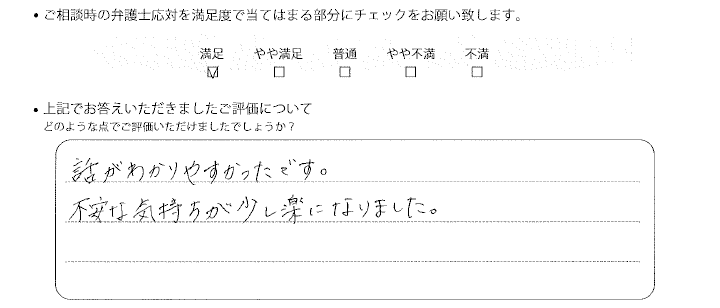 • ご相談時の弁護士応対を満足度で当てはまる部分にチェックをお願い致します。
満足 やや満足 普通 やや不満 不満
☑ □ □ □ □
• 上記でお答えいただきましたご評価について
どのような点でご評価いただけましたでしょうか？
話がわかりやすかったです。
不安な気持ちが少し楽になりました。